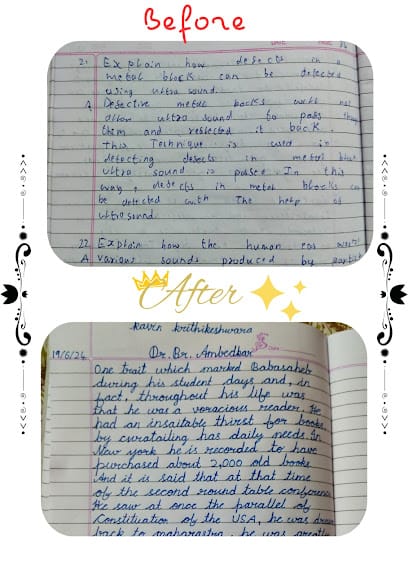 Before
21. Explain how defects in a
metal block can be detected
using ultra sound.
A Defective metal bocks will not
allow ultro sound to pass through
them and reflected it back.
This Technique is used in
detecting defects in metal block
ultra sound is passed. In this
way, defects in metal blocks can
be detected with The help of
ultrosound.
22. Explain how the human ear works
A various sounds produced by
After
kavin krithikeshwara
19/6/24 Dr. Br. Ambedkar
One trait which marked Babasaheb
during his student days and, in
fact, throughout his life was
that he was a voracious reader. He
had an insaitable thirst for books,
by curatailing has daily needs. In
New york he is recorded to have
purchased about 2,000 old books
And it is said that at that time
of the second round table conference
He saw at once the parallel of
Constituation of the USA, he was
back to maharastra, he was greatly